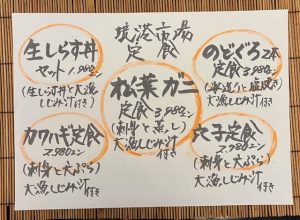 境港市場
定食
生しらす丼
セット 1,980エン
(生しらす丼と大漁
しじみ汁付き
のどぐろ2本
定食 3,980エン
大漁しじみ汁付き
松葉ガニ
定食 3,980エン
(刺身と蒸し)
大漁しじみ汁付き
カワハギ定食
2,980エン
(刺身と天ぷら)
大漁しじみ汁付き
穴子定食
2,980エン
(刺身と天ぷら)
大漁しじみ汁付き